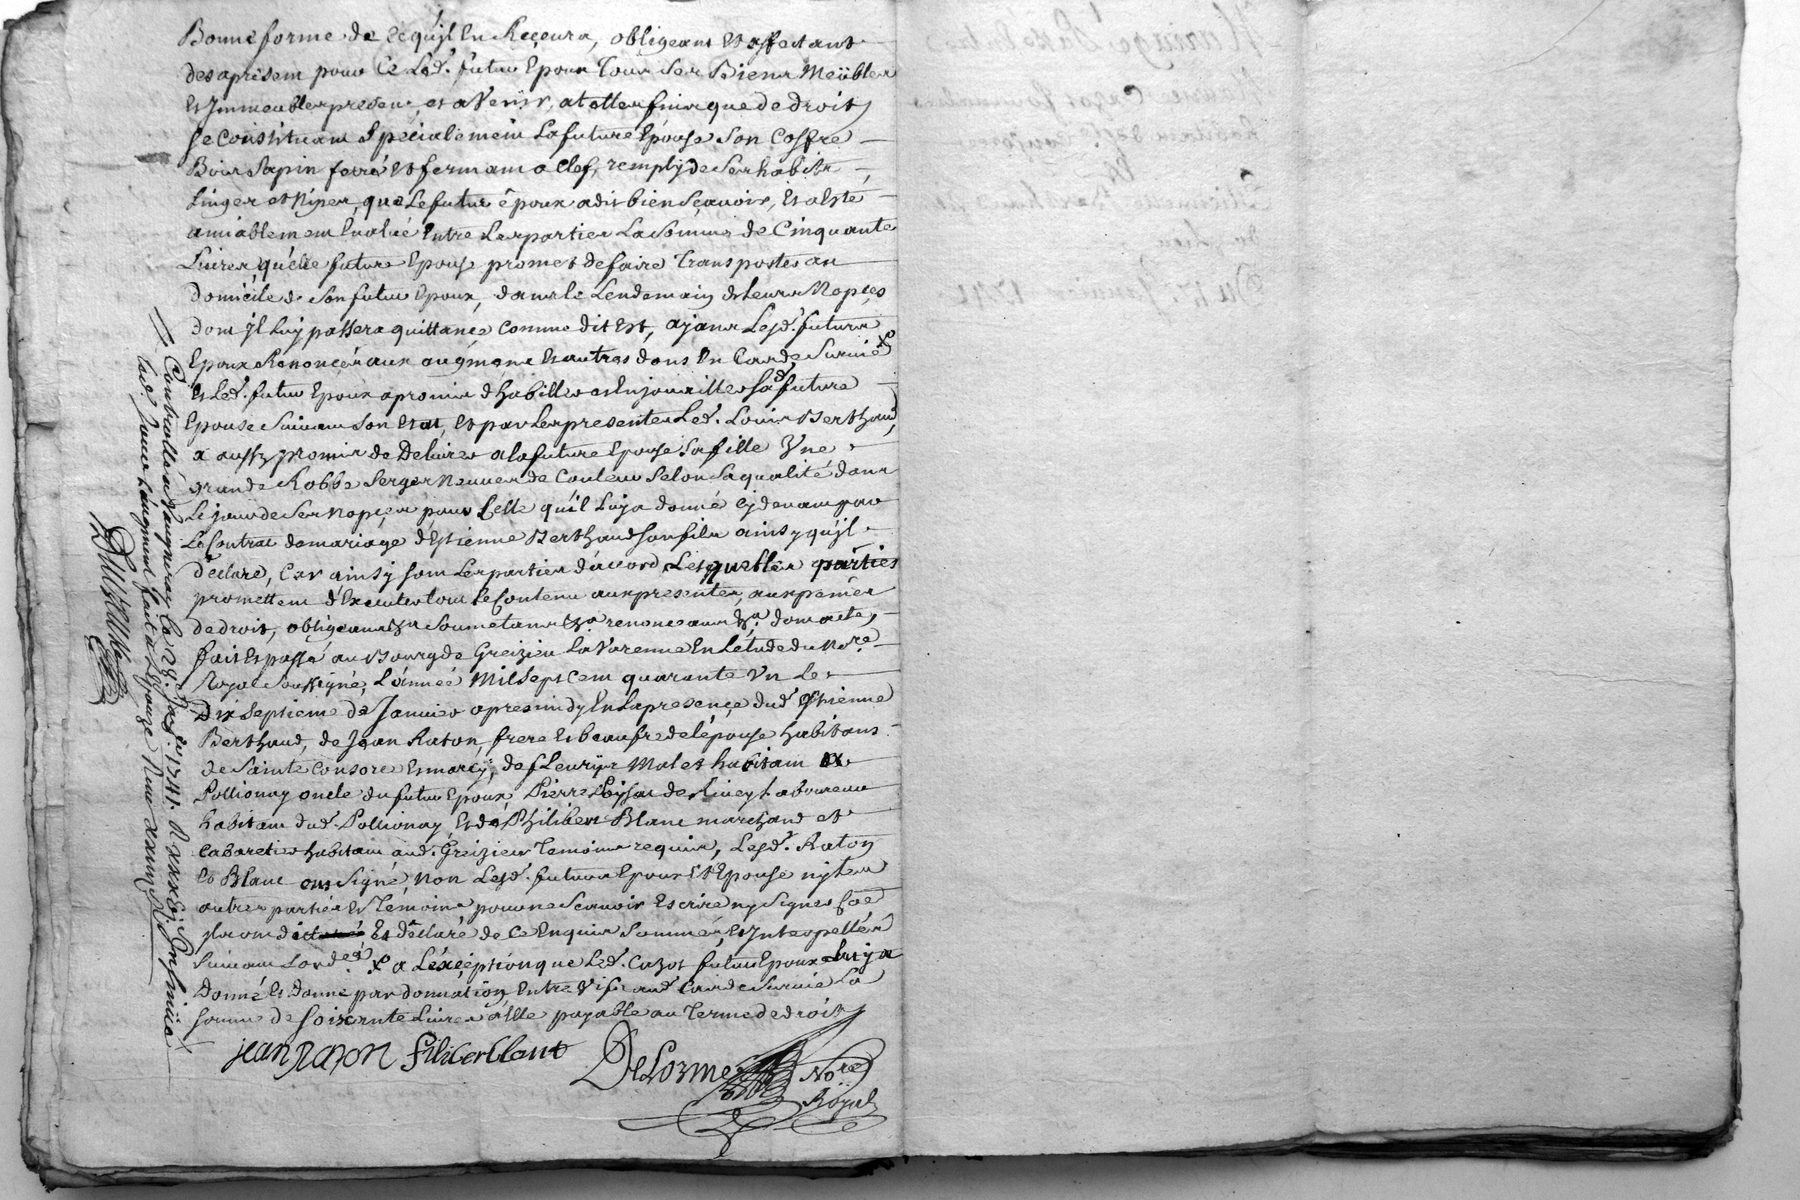 Bonne forme de ce qu'jl En Reçeura, obligeant Et affectant
des apresent pour Ce Led. futur Epoux Tous Ses Biens Meübles
Et Jmmeubles presens et a Venir, a telles fins que de droit
Se Constituant Specialement La future Epouse Son Coffre
Bois Sapin ferré Et fermant a Clef, remply de Ses habits
Linges et Nipes, que Le futur époux a dit bien Sçavoir, Et a Esté
amiablement Evalué Entre Les parties La Somme de Cinquante
Livres, qu'elle future Epouse promet de faire Transporter au
domicile de Son futur Epoux, dans le Lendemain de Leurs Nopçes
dont jl Luy passera quittance Comme dit Est, ajant Lesd. futurs
Epoux Renoncés aux augment Et autres dons En Cas de Survie x
Et Led. futur Epoux a promis d'habiller et Enjouailler Sad. future
Epouse Suivant Son Etat, Et par Les presentes Led. Louis Berthaud
a aussy promis de Delivrer a la future Epouse Sa fille Vne
grande Robbe Serge Neuve de Couleur Selon Sa qualité dans
Le jour de Ses nopçes pour Celle qu'il Luy a donné cy devant par
Le Contrat de mariage d'Estienne Berthaud Son fils ainsy qu'jl
déclare, Car ainsy Sont Les parties d'accord Lesquelles parties
promettent d'Executer tout Le Contenu aux presentes, aux peines
de droit, obligeant &a Soumetant &a renonceant &a. dont acte,
fait Et passé au Bourg de Greizieu La Varenne En L'étude du No.re
Royal Soussigné, L'année Mil Sept Cent quarante Vn Le
Dix Septieme de Janvier apres midy En La presençe dud. Estienne
Berthaud, de Jean Raton, frere Et beaufre de L'épouse habitans
de Sainte Consorce Et marcy, de fleurys Molet habitant a
Pollionay oncle du futur Epoux, Pierre Laboureur
habitant dud. Pollionay, Et de Philibert Blanc marchand et
Cabaretier habitant aud. Greizieu Temoins requis, Lesd. Raton
Et Blanc ont Signé, Non Lesd. futurs Epoux Et Epouse ny Les
autres parties Et Témoins pour ne Scavoir Escrire ny Signer
Et déclaré de Ce Enquis Sommés, Et Interpellés
Suivant L'ord.ce x a L'exçéption que Led. Cazot futur Epoux Luy a
Donné Et Donne par donnation Entre Vifs aud. Cas de Survie La
Somme de Soixante Livres a Elle payable au Terme de droit
jean raton filibert blanc DeLorme No.re
Royal
Controllé a Vaugneray Le 28.e Jan.er 1741. R Jnsinüé
Led. Jour L'augment fait a L'Epouse